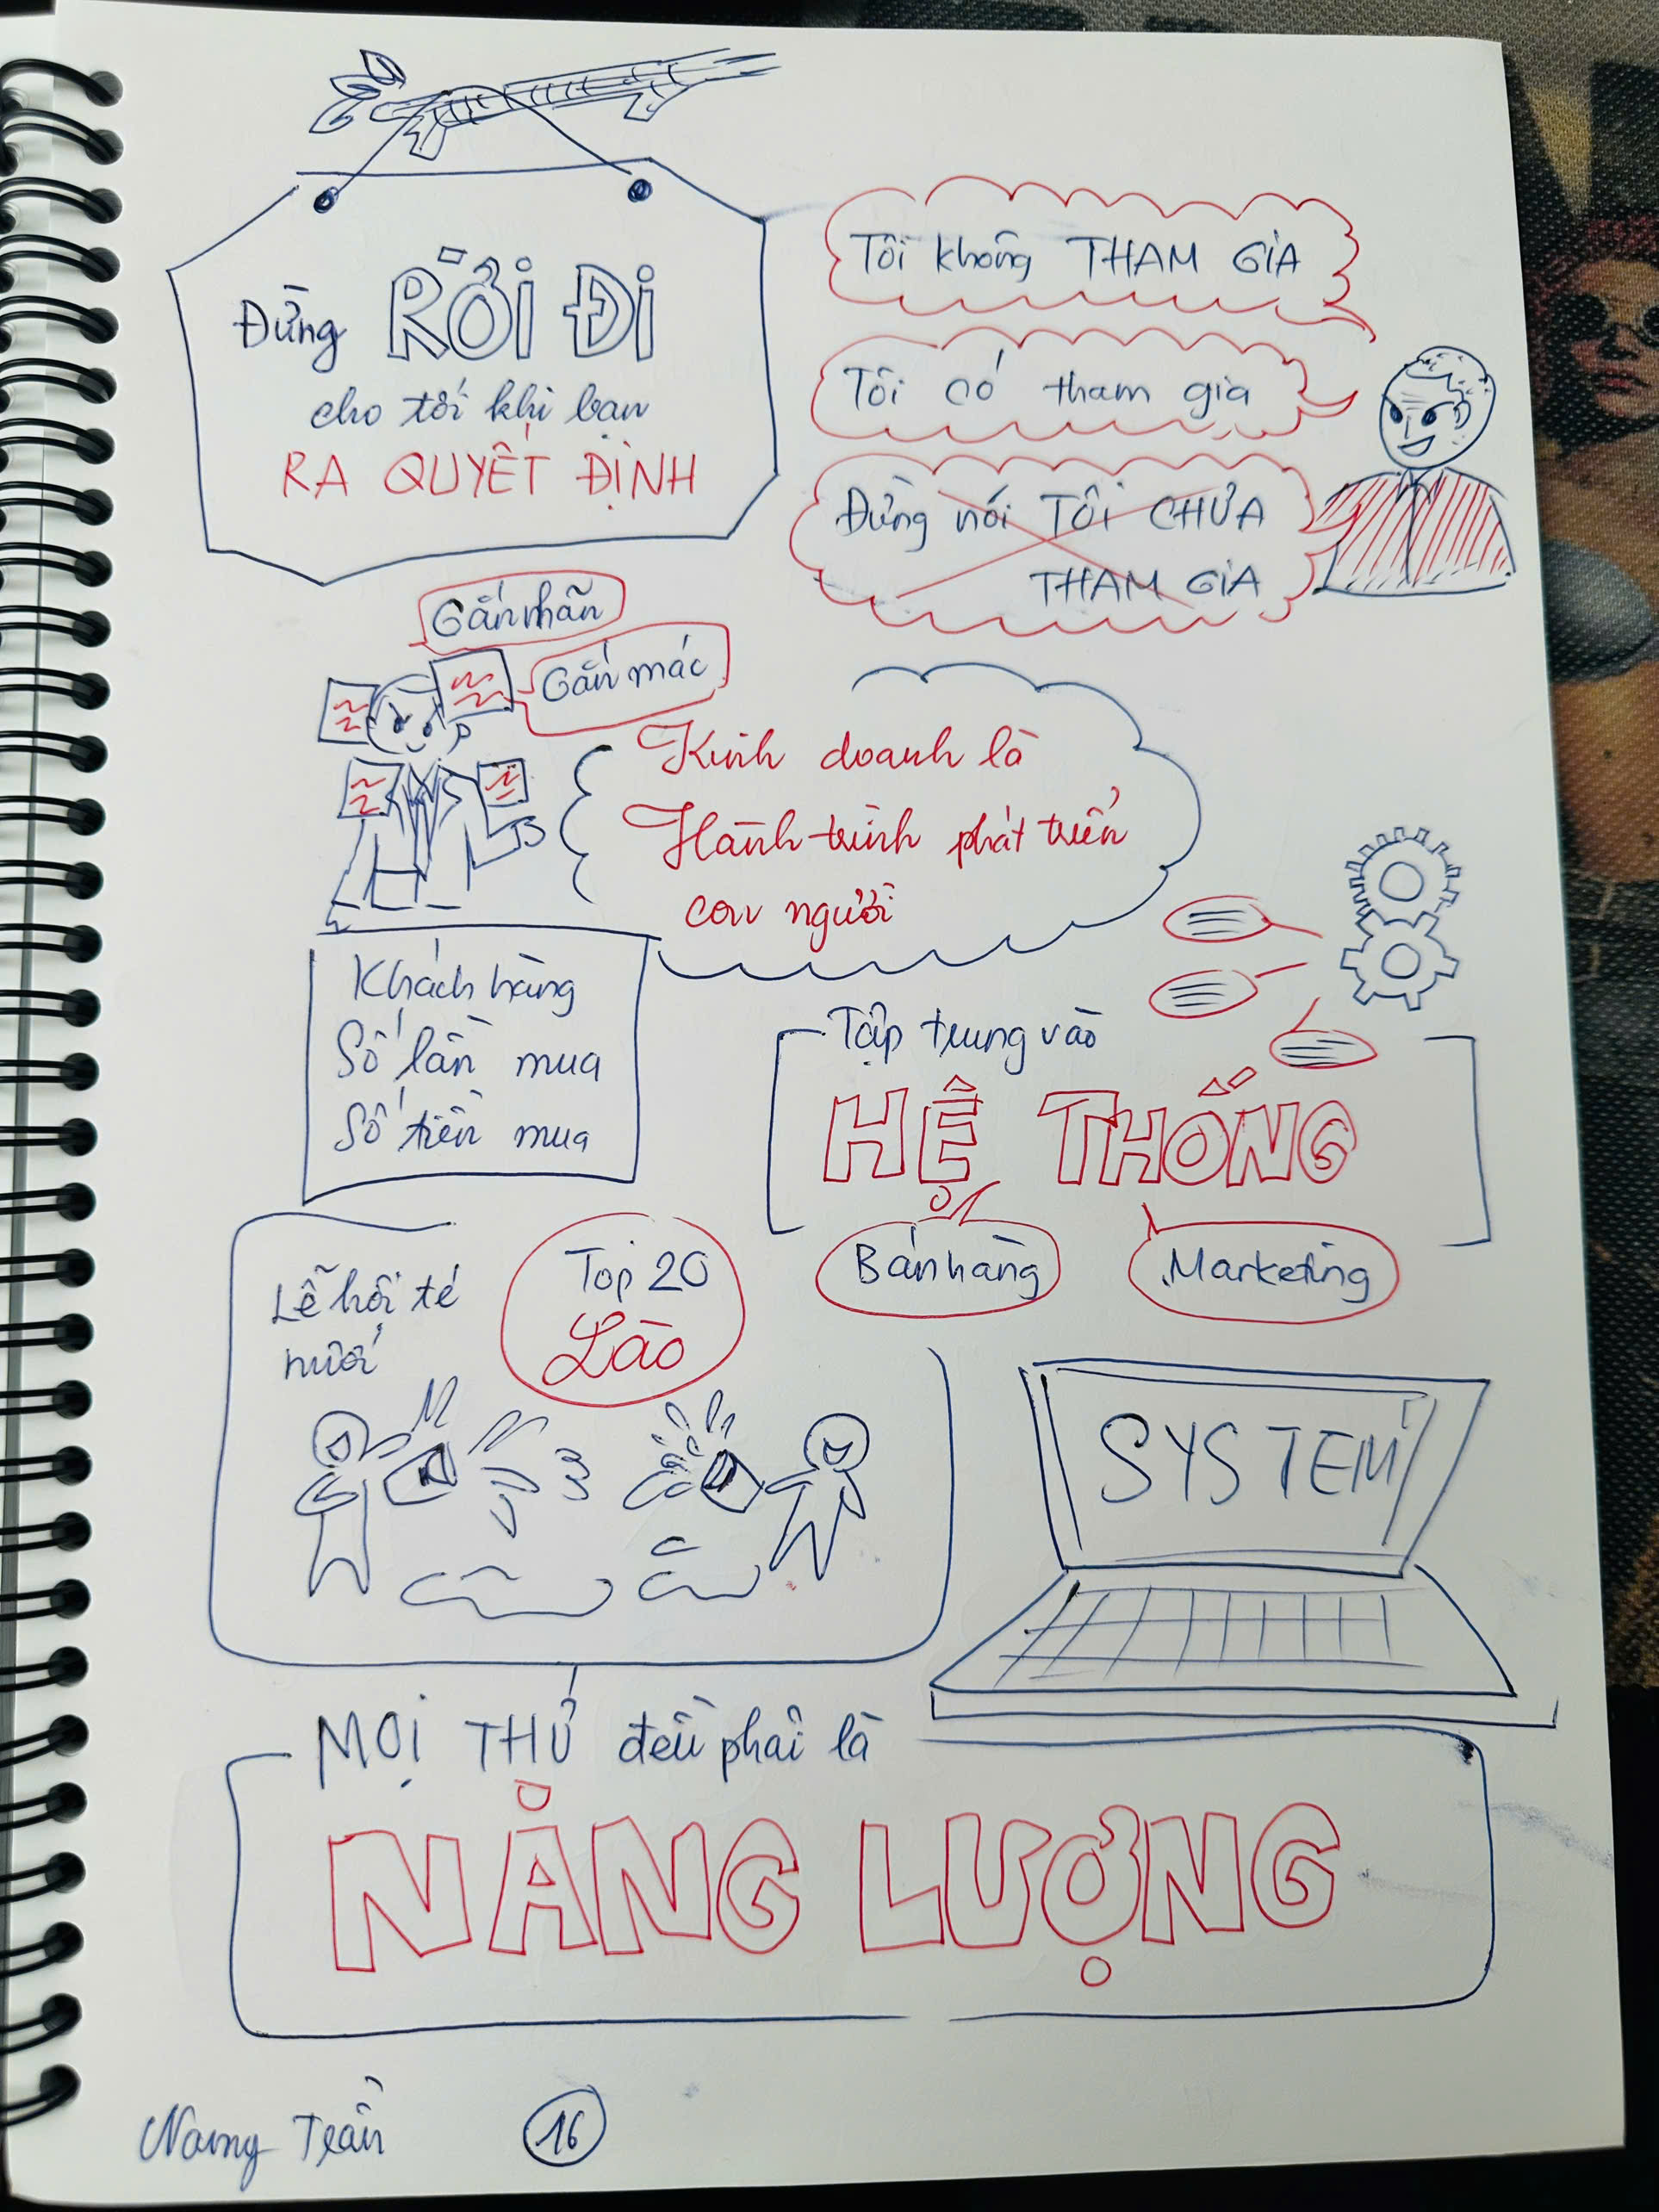 Đừng RỜI ĐI
cho tới khi bạn
RA QUYẾT ĐỊNH
Tôi không THAM GIA
Tôi có tham gia
Đừng nói TÔI CHƯA
THAM GIA
Gắn nhãn
Gắn mác
Kinh doanh là
Hành trình phát triển
con người
Khách hàng
Số lần mua
Số tiền mua
Tập trung vào
HỆ THỐNG
Bán hàng
Marketing
Lễ hội té
nước
Top 20
Lào
SYSTEM
MỌI THỨ đều phải là
NĂNG LƯỢNG
Trần
16